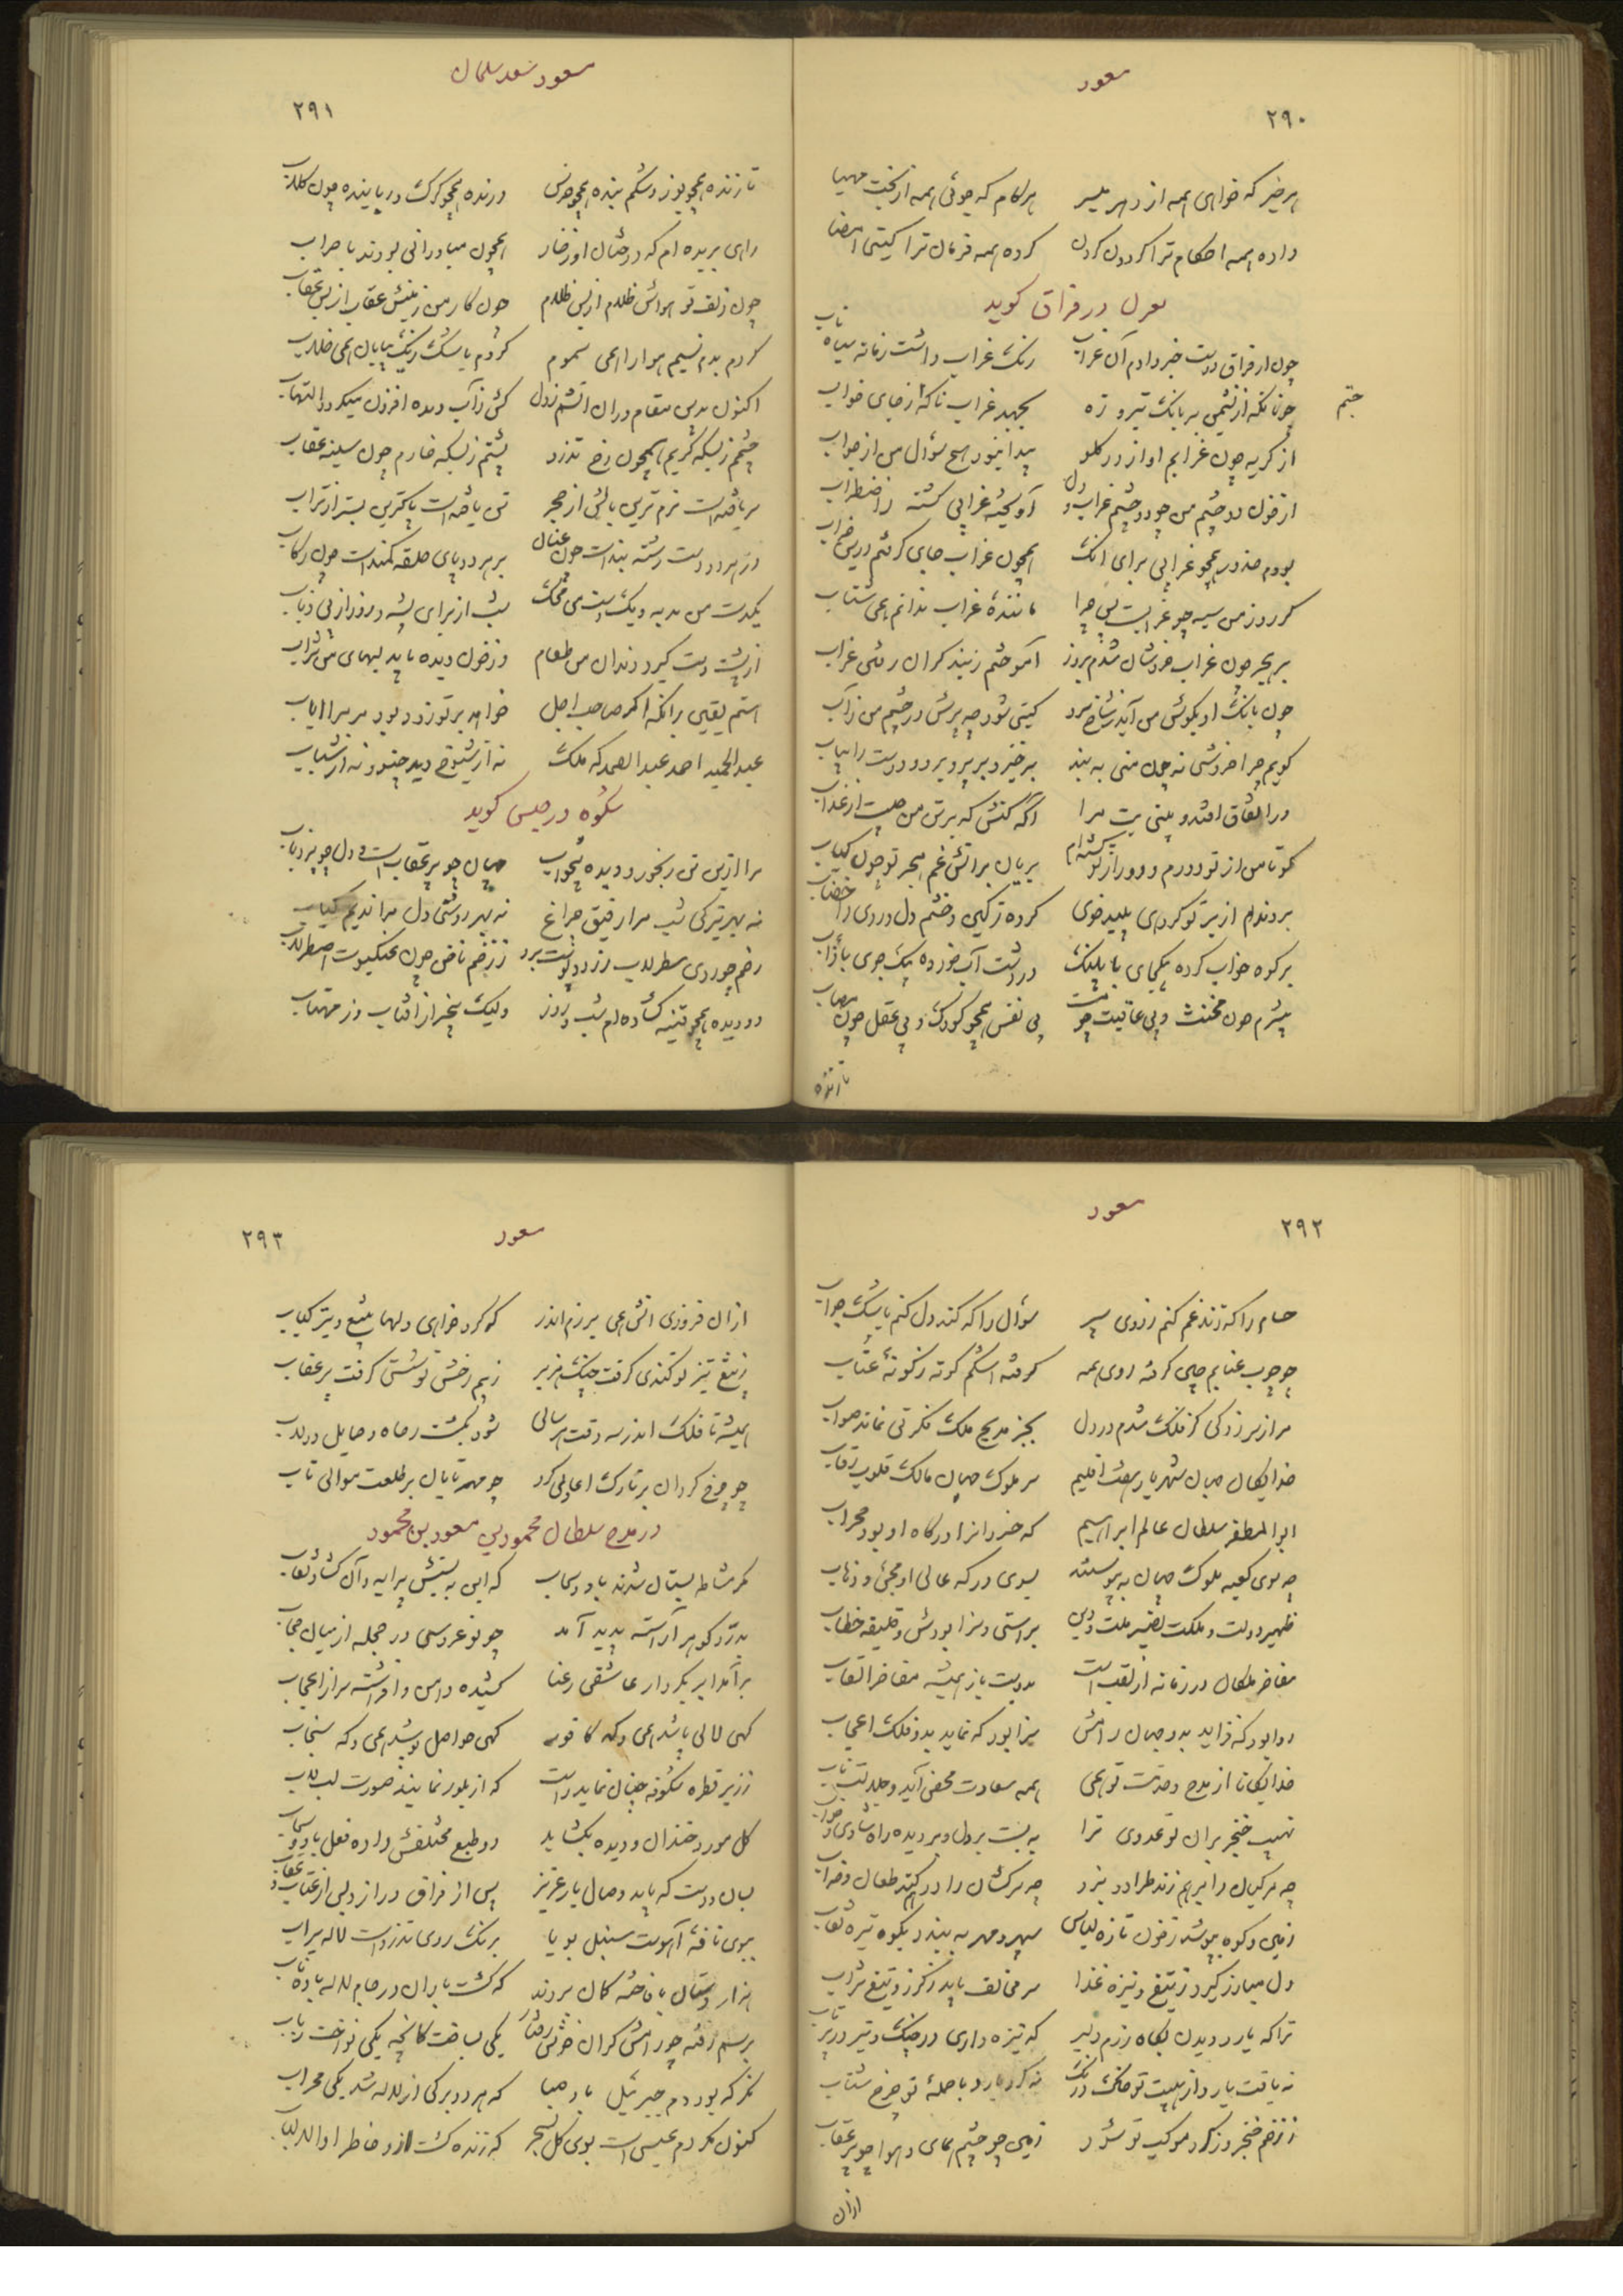 مسعود
۲۹۰
هر خیر که خواهی همه از دهر میسر هر کام که جوئی همه از بخت مهیا
داده همه احکام ترا گردون گردن کرده همه فرمان ترا گیتی امضا
در فراق گوید
چون از فراق دوست خبر دادم آن غراب رنگ غراب داشت زمانه سیاه ناب
چونانکه از نشیمن بر بانگ تیر و زه بجهد غراب ناگه از جای خواب
جستم
از گریه چون غرابم آواز در گلو پیدا نبود هیچ سؤال من از جواب
از خون دو چشم من چو دو چشم غراب و دل آویخته غرابی گشته ز اضطراب
بودم حذور همچو غرابی برای آنک همچون غراب جای گرفتم درین خراب
گر روز من سیه چو غرابست پس چرا مانندهٔ غراب ندانم همی شتاب
بر هجر چون غراب خروشان شدم بروز آموختم ز بند گران رفتن غراب
چون بانگ او بگوش من آید ز شاخ سرو گیتی شود چو پرش در چشم من ز آب
گویم چرا خروشی نه چون منی به بند برخیز و بر پر و بر و دوست را بیاب
ور اتفاق افتد و بینی بت مرا آگه کنش که بر تن من چیست از عذاب
گو تا من از تو دورم و دور از تو گشته‌ام بریان بر آتش غم هجر تو چون کباب
بردندم از بر تو کردهای پلید خوی کرده ز کین و خشم دل و روی را خضاب
بر کوه خواب کرده بیکجای با پلنگ در دشت آب خورده بیک جوی با ذئاب
بی شرم چون مخنث و بی عاقبت چو مست بی نفس همچو کودک و بی عقل چون مصاب
تازنده
مسعود سعد سلمان
۲۹۱
تازنده همچو یوز و شکم بنده همچو خرس درنده همچو گرگ و رباینده چون کلاب
راهی بریده‌ام که درختان او ز خار همچون مبارزانی بودند با حراب
چون زلف تو هوائش ظلام از پس ظلام چون کار من زمینش عقاب از پس عقاب
کردم بدم نسیم هوا را همی سموم کردم باشک ریگ بیابان همی خلاب
اکنون بدین مقام در آن آتشم ز دل کش ز آب دیده افزون میگردد التهاب
چشمم ز بسکه گریم همچون رخ تذرو پشتم ز بسکه خارم چون سینه عقاب
سر یافته‌است نرم‌ترین بالش از حجر تن یافته‌است پاکترین بستر از تراب
در هر دو دست رشته بندست چون عنان بر هر دو پای حلقه کندست چون رکاب
یکدست من مدیه و یکدست من محک شب از برای پشه و روز از پی ذباب
از پشت دست گیرد دندان من طعام وز خون دیده یابد لبهای من شراب
هستم یقین بر آنکه اگر صاحب اجل خواهد بر تو زود بود مر مرا ایاب
عبدالحمید احمد عبدالصمد که ملک نه از شیوخ دید چنو و نه از شباب
شکوه در حبس گوید
مرا ازین تن رنجور و دیده بیخواب جهان چو پر عقاب است و دل چو پر ذباب
نه بهر تیرگی شب مرا رفیق چراغ نه بهر روشنی دل مرا ندیم کتاب
رخم چو روی سطرلاب زرد و پوست برو ز زخم ناخن چون عنکبوت اصطرلاب
دو دیده همچو قنینه گشاده‌ام شب و روز ولیک بیخبر از آفتاب وز مهتاب
مسعود
۲۹۲
حسام را که زند غم کنم ز روی سپر سؤال را که کند دل کنم باشک جواب
چو چوب عنابم چین گرفته روی همه گرفته اشکم گونه ز گونهٔ عناب
مرا ز سر زدگی کز فلک شدم در دل بجز مدیح ملک فکرتی نماند صواب
خدایگان جهان شهریار هفت اقلیم سر ملوک جهان مالک قلوب رقاب
ابوالمظفر سلطان عالم ابراهیم که خسروانرا درگاه او بود محراب
چه سوی کعبه ملوک جهان بپیوسته بسوی درگه عالی او مجئ و ذهاب
ظهیر دولت و ملکت نصیر ملت و دین براستی و سزا بودش و خلیفه خطاب
مفاخر ملکان در زمانه از لقب است بدوست باز همیشه مفاخر القاب
روا بود که فزاید بدو جهان رامش سزا بود که نماید بدو فلک اعجاب
خدایگانا از مدح و خدمت تو همی همه سعادت محض آید و جلالت ناب
نهیب خنجر بران تو عدوی ترا به بست بر دل و بر دیده راه شادی و خواب
چه مرکبان را بر هم زند طراد و نبرد چه سرکشان را در هم کند طعان و ضراب
زمین و کوه بپوشد ز خون تازه لباس سپهر و مهر به بندد بکوه تیره نقاب
دل مبارز گیرد ز تیغ و نیزه غذا سر مخالف یابد ز گرز و تیغ شراب
ترا که یارد دیدن بگاه رزم دلیر که نیزه داری در چنگ و تیر در پرتاب
نه یافت یارد از هیبت تو خاک درنگ نه کرد یارد با حملهٔ تو چرخ شتاب
ز زخم خنجر وز گرد موکب تو شود زمین چو چشم همای و هوا چو پر عقاب
ازان
مسعود
۲۹۳
ازان فروزی آتش همی برزم اندر که کرد خواهی دلها بتیغ و تیر کباب
ز تیغ تیز تو کندی گرفت چنگ هزبر ز بیم رخش تو سستی گرفت پر عقاب
همیشه تا فلک اندر سه وقت هر سالی شود بگشت رحاه و حمایل و دولاب
چو چرخ گردان بر تارک اعادی گرد چو مهر تابان بر طلعت موالی تاب
در مدح سلطان محمود بن مسعود بن محمود
مگر مشاطه بستان شدند باد و سحاب که این به بستش پیرایه و آن گشاد نقاب
بدر و گوهر آراسته پدید آمد چو نو عروسی در حجله از میان حجاب
برآمد ابر بکردار عاشقی رعنا کشیده دامن و افراشته سر از اعجاب
گهی لالی پاشد همی و گه کافور گهی حواصل پوشد همی و گه سنجاب
ز زیر قطره شکوفه چنان نماید راست که از بلور نمایند صورت لبلاب
گل مورد خندان و دیده بگشاید دو طبع مختلفش داده فعل باد و سحاب
بسان دوست که یابد وصال یار عزیز پس از فراق دراز و پس از عتاب و عقاب
ببوی نافهٔ آهوست سنبل بویا برنگ روی تذرو است لاله سیراب
هزار دستان با فاخته گمان بردند که گشت باران در جام لاله باده ناب
برسم رفته چو رامشگران خوش رفتار یکی بساخت کمانچه یکی نواخت رباب
نگر که بود دم جبرئیل باد صبا که هر دو برگی از لاله شد یکی محراب
کنون مگر دم عیسی است بوی گل بسحر که زنده گشت ازو خاطر اولوالالباب